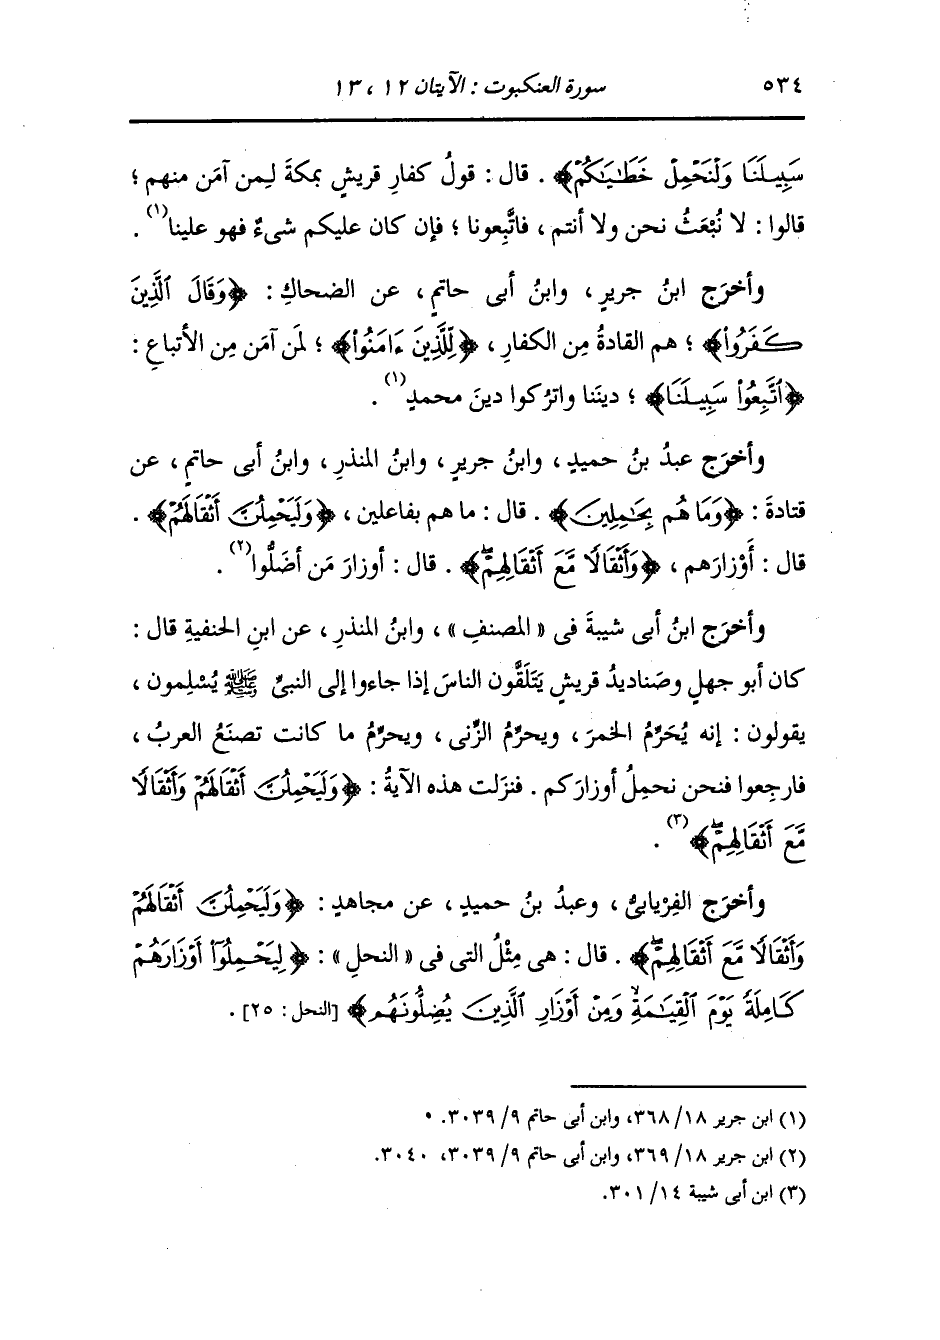 ٥٣٤ سورة العنكبوت : الآيتان ١٢ ، ١٣
سَبِيلَنَا وَلْنَحْمِلْ خَطَٰيَٰكُمْ﴾ . قال : قولُ كفارِ قريشٍ بمكةَ لِمن آمَن منهم ؛
قالوا : لا نُبْعَثُ نحن ولا أنتم ، فاتَّبِعونا ؛ فإن كان عليكم شىءٌ فهو علينا(١) .
وأخرَج ابنُ جريرٍ ، وابنُ أبى حاتمٍ ، عن الضحاكِ : ﴿وَقَالَ ٱلَّذِينَ
كَفَرُواْ﴾ ؛ هم القادةُ مِن الكفارِ ، ﴿لِلَّذِينَ ءَامَنُواْ﴾ ؛ لمَن آمَن مِن الأتباعِ :
﴿ٱتَّبِعُواْ سَبِيلَنَا﴾ ؛ دينَنا واترُكوا دينَ محمدٍ(١) .
وأخرَج عبدُ بنُ حميدٍ ، وابنُ جريرٍ ، وابنُ المنذرِ ، وابنُ أبى حاتمٍ ، عن
قتادةَ : ﴿وَمَا هُم بِحَٰمِلِينَ﴾ . قال : ما هم بفاعلين ، ﴿وَلَيَحْمِلُنَّ أَثْقَالَهُمْ﴾ .
قال : أَوْزارَهم ، ﴿وَأَثْقَالًا مَّعَ أَثْقَالِهِمْۖ﴾ . قال : أوزارَ مَن أضَلُّوا(٢) .
وأخرَج ابنُ أبى شيبةَ فى « المصنفِ » ، وابنُ المنذرِ ، عن ابنِ الحنفيةِ قال :
كان أبو جهلٍ وصَناديدُ قريشٍ يَتَلَقَّون الناسَ إذا جاءوا إلى النبىِّ ﷺ يُسْلِمون ،
يقولون : إنه يُحَرِّمُ الخمرَ ، ويحرِّمُ الزِّنى ، ويحرِّمُ ما كانت تصنَعُ العربُ ،
فارجِعوا فنحن نحمِلُ أوزارَكم . فنزَلت هذه الآيةُ : ﴿وَلَيَحْمِلُنَّ أَثْقَالَهُمْ وَأَثْقَالًا
مَّعَ أَثْقَالِهِمْۖ﴾(٣) .
وأخرَج الفِرْيابىُّ ، وعبدُ بنُ حميدٍ ، عن مجاهدٍ : ﴿وَلَيَحْمِلُنَّ أَثْقَالَهُمْ
وَأَثْقَالًا مَّعَ أَثْقَالِهِمْۖ﴾ . قال : هى مِثْلُ التى فى « النحلِ » : ﴿لِيَحْمِلُوٓاْ أَوْزَارَهُمْ
كَامِلَةً يَوْمَ ٱلْقِيَٰمَةِۙ وَمِنْ أَوْزَارِ ٱلَّذِينَ يُضِلُّونَهُم﴾ [النحل : ٢٥] .
(١) ابن جرير ١٨/ ٣٦٨، وابن أبى حاتم ٩/ ٣٠٣٩.
(٢) ابن جرير ١٨/ ٣٦٩، وابن أبى حاتم ٩/ ٣٠٣٩، ٣٠٤٠.
(٣) ابن أبى شيبة ١٤/ ٣٠١.